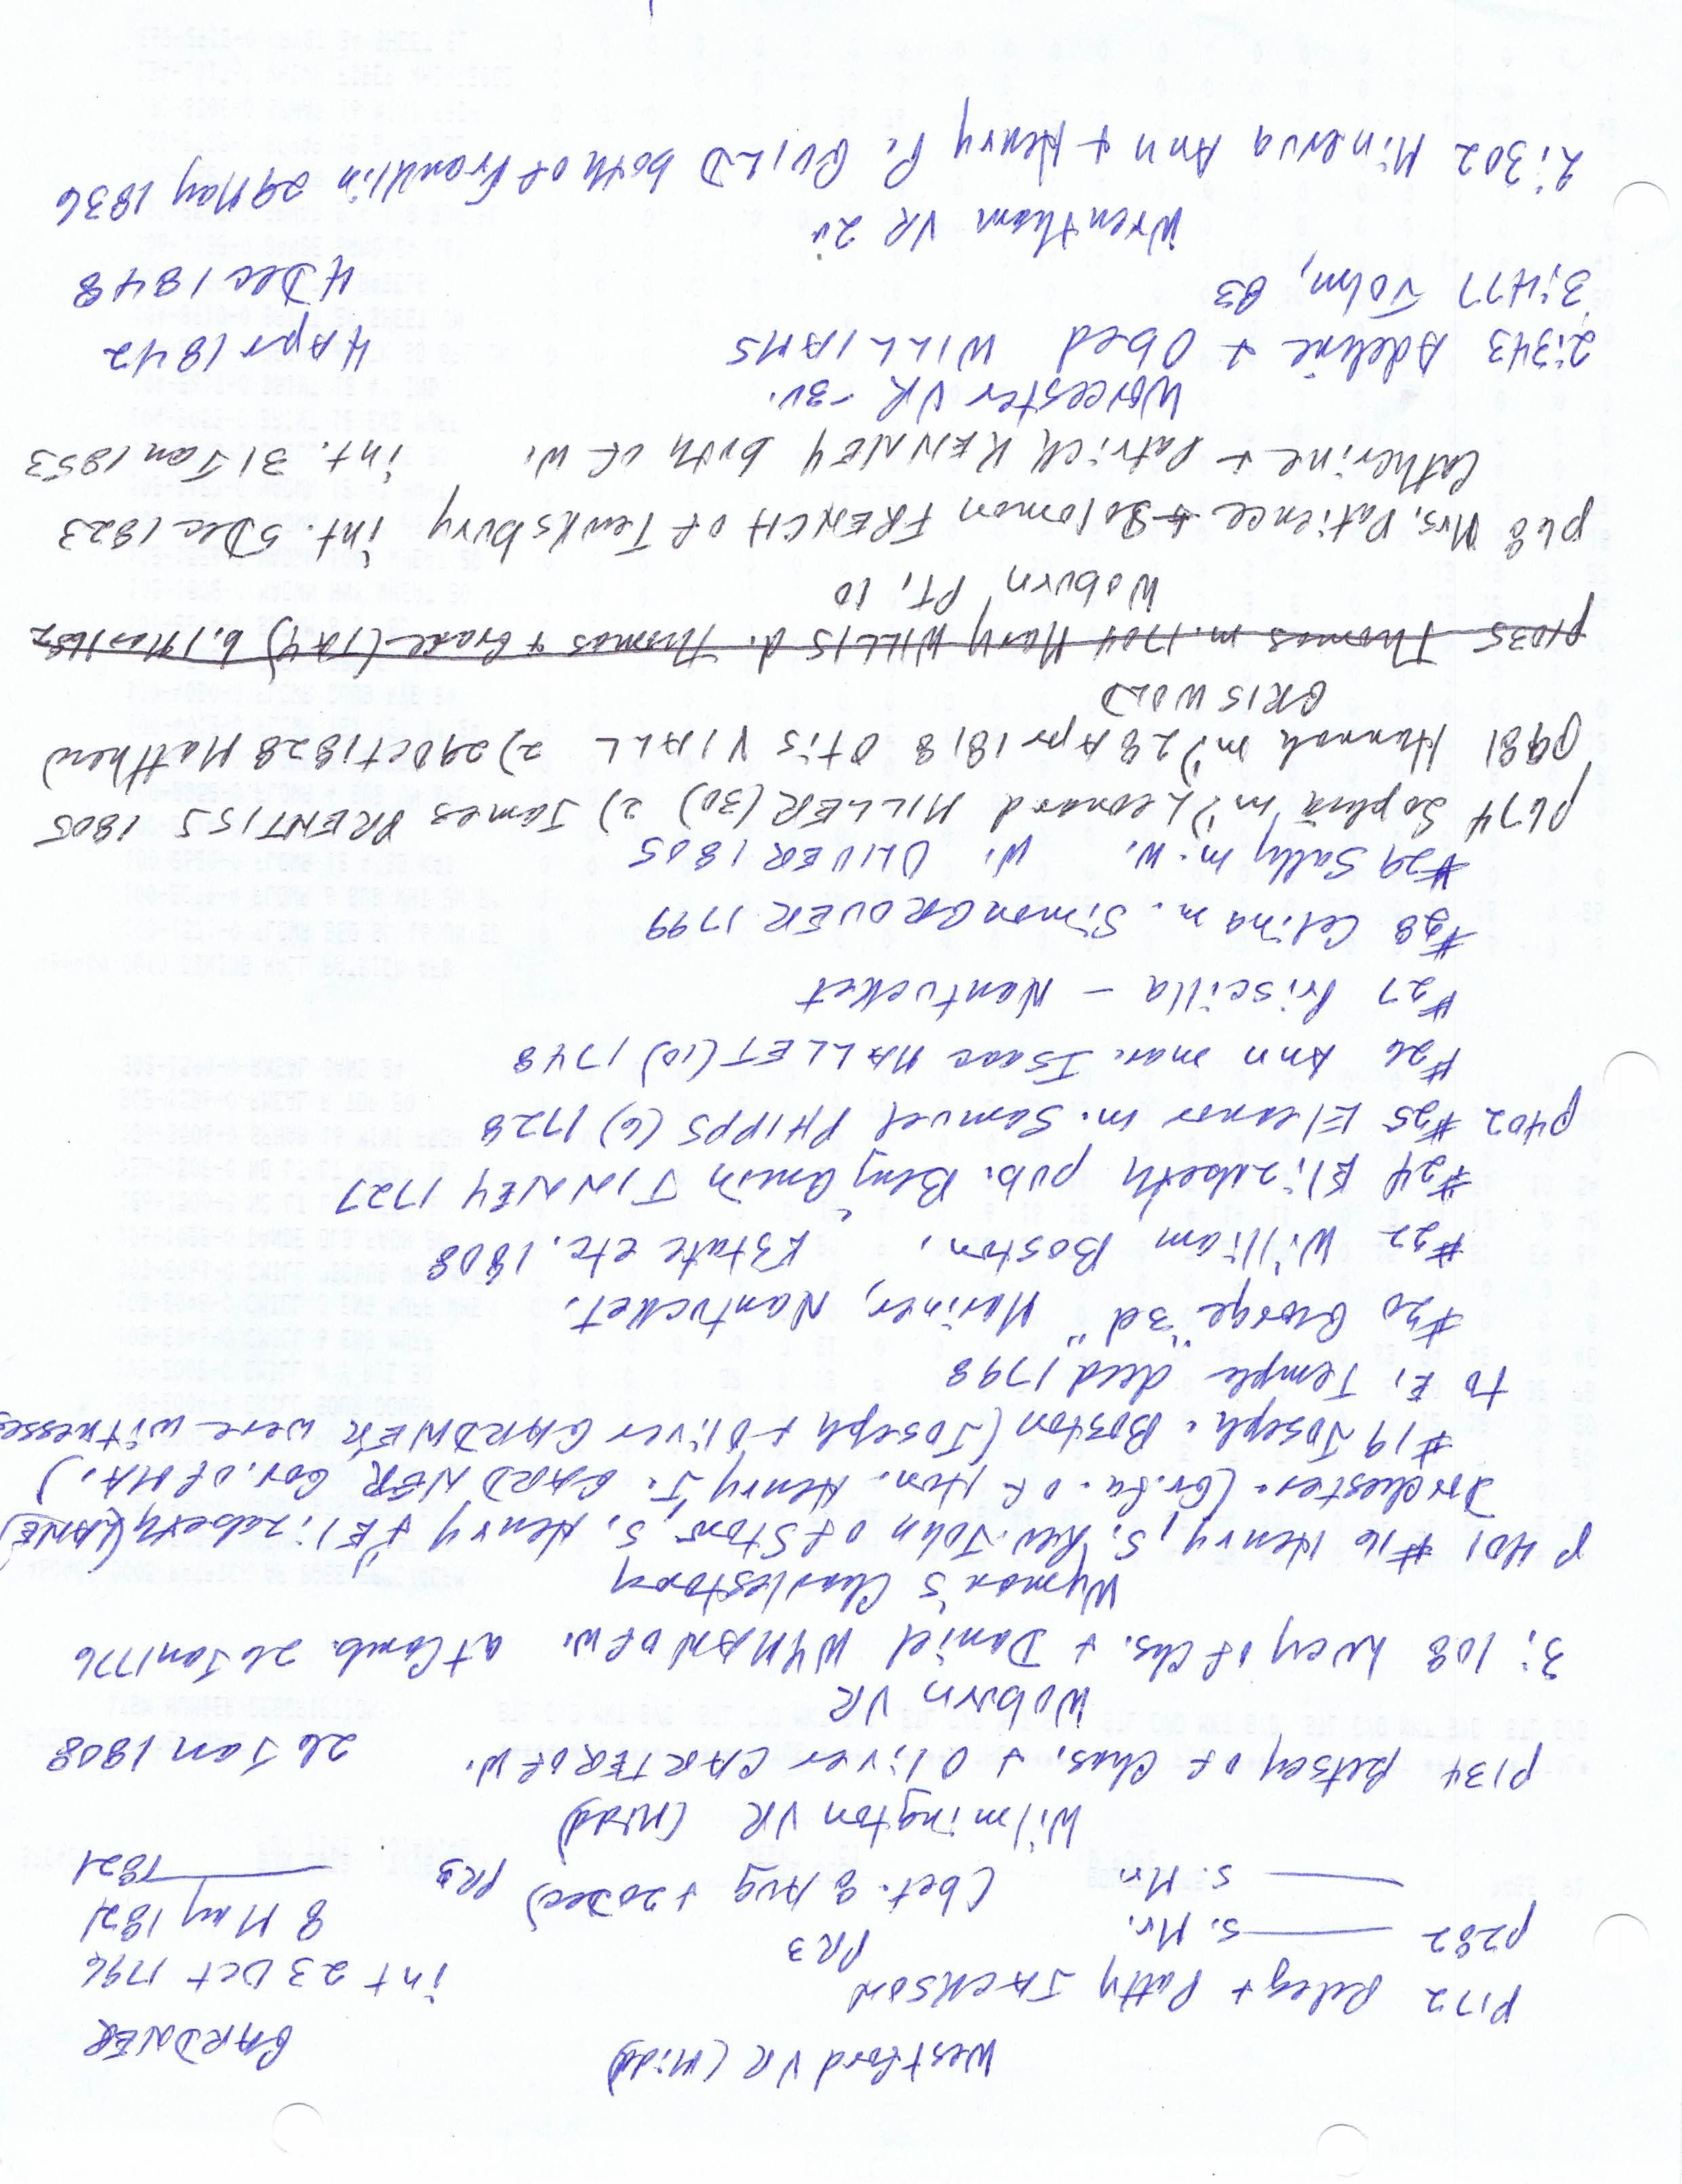 Westford VR (Midd) GARDNER
p172 Peleg + Patty JACKSON int 23 Oct 1796
p282 ——— S. Mr. PR3 8 May 1821
——— S. Mr. (bet. 8 Aug + 20 Dec) PR3 ——— 1821
Wilmington VR (Midd)
p134 Betsey of Chas. + Oliver CARTER of W. 26 Jan 1808
Woburn VR
3:108 Lucy of Chs. + Daniel WYMAN of W. at Camb. 26 Jan 1776
Wyman's Charlestown
p401 #16 Henry, s. Rev. John of Stow, s. Henry + Elizabeth (LANE)
Dorchester. (Gr. fa. of Hon. Henry J. GARDNER, Gov. of MA.)
#19 Joseph. Boston (Joseph + Oliver GARDNER were witnesses
to E. Temple deed 1798
#20 George "3d" Mariner, Nantucket.
#22 William Boston, Estate etc. 1808
#24 Elizabeth pub. Benjamin TINNEY 1727
p402 #25 Eleanor m. Samuel PHIPPS (6) 1728
#26 Ann mar. Isaac HALLET (10) 1748
#27 Priscilla - Nantucket
#28 Celina m. Simon GROVER 1799
#29 Sally m. W. W. OLIVER 1805
p674 Sophia m 1) Leonard MILLER (30) 2) James PRENTISS 1805
p981 Hannah m 1) 28 Apr 1818 Otis VIALL 2) 29 Oct 1828 Matthew
GRISWOLD
p1035 Thomas m. 1704 Mary WILLIS d. Thomas + Grace (TAY) b. 1 Mar 1682
Woburn Pt. 10
p68 Mrs. Patience + Solomon FRENCH of Tewksbury int. 5 Dec 1823
Catherine + Patrick KENNEY both of W. int. 31 Jan 1853
Worcester VR -3v.
2:343 Adeline + Obed WILLIAMS 4 Apr 1842
3:477 John, 83 4 Dec 1848
Wrentham VR 2v
2:302 Minerva Ann + Henry P. GUILD both of Franklin 29 May 1836